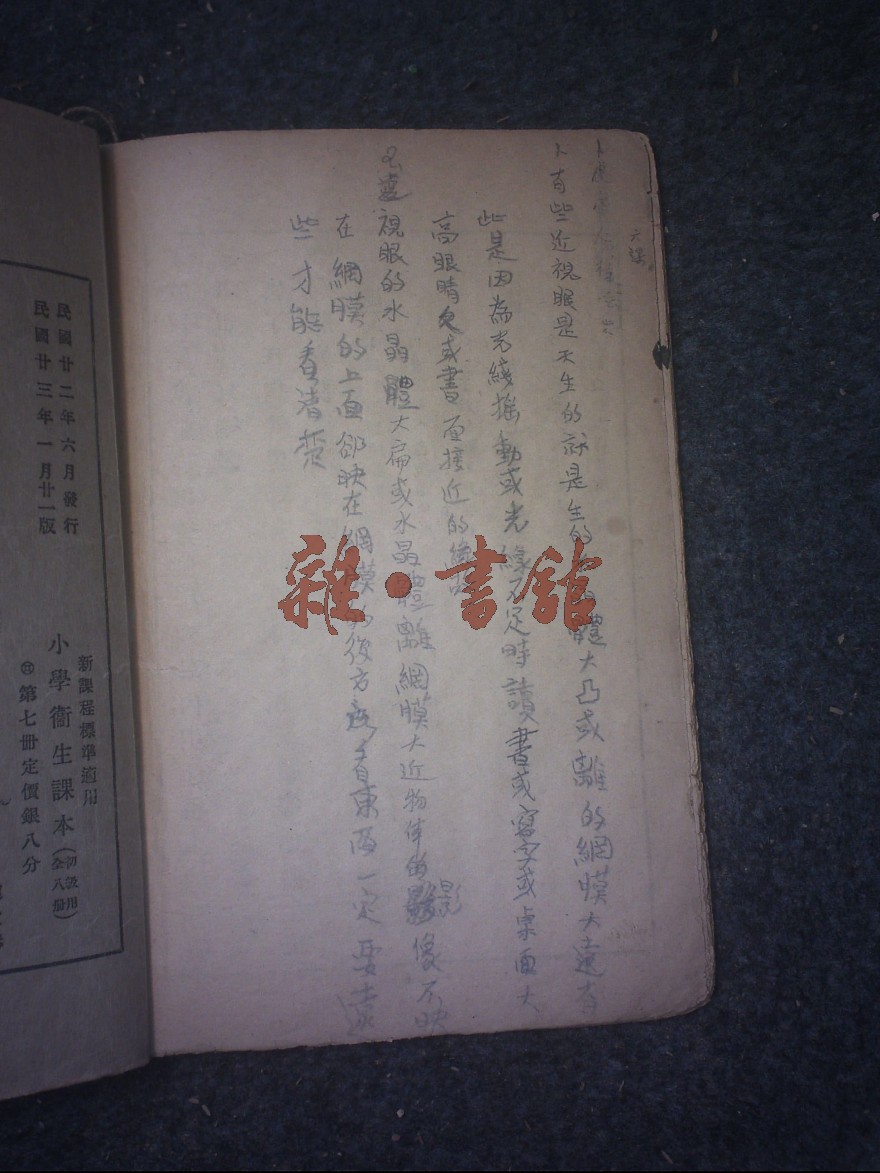 六課
1有些近視眼是天生的就是生的體大凸或離的網膜大遠有
些是因為光綫摇動或光綫不足時讀書或寫字或桌面大
高眼睛或書面接近的
2遠視眼的水晶體大扁或水晶體離網膜大近物体的影像不映
在網膜的上面卻映在網膜的後方看東西一定要遠
些才能看清楚
雜·書館
民國廿二年六月發行
民國廿三年一月廿一版
新課程標準適用
小學衞生課本(初級用全八冊)
第七冊定價銀八分